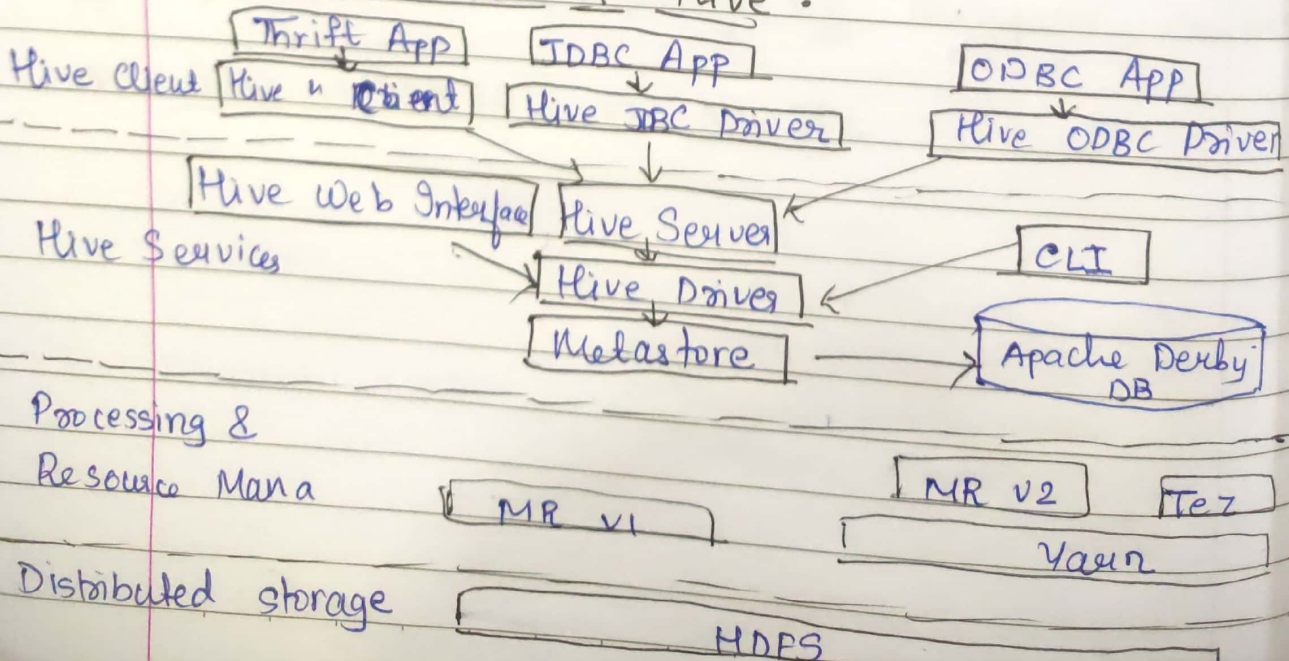 Hive :
Thrift App
JDBC App
ODBC App
Hive Client
Hive " Client
Hive JDBC Driver
Hive ODBC Driver
Hive Web Interface
Hive Server
Hive Services
CLI
Hive Driver
Metastore
Apache Derby
DB
Processing &
Resource Mana
MR V1
MR V2
Tez
Yarn
Distributed storage
HDFS